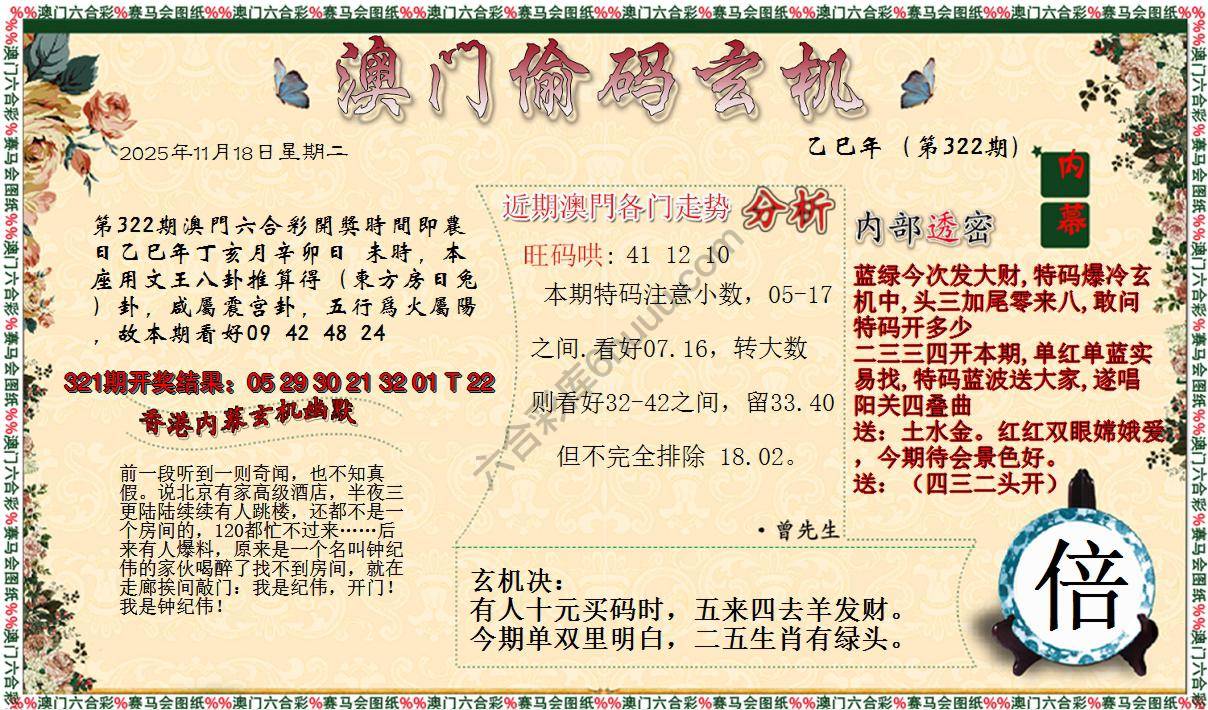 %%澳门六合彩%赛马会图纸%%澳门六合彩%赛马会图纸%%澳门六合彩%赛马会图纸%%澳门六合彩%赛马会图纸%%澳门六合彩%赛马会图纸%%澳门六合彩%赛马会图纸%%
澳门偷码玄机
2025年11月18日星期二
乙巳年（第322期）
内幕
第322期澳門六合彩開獎時間即農
日乙巳年丁亥月辛卯日 未時，本
座用文王八卦推算得（東方房日兔
）卦，咸屬震宫卦，五行爲火屬陽
，故本期看好09 42 48 24
321期开奖结果：05 29 30 21 32 01 T 22
香港内幕玄机幽默
前一段听到一则奇闻，也不知真
假。说北京有家高级酒店，半夜三
更陆陆续续有人跳楼，还都不是一
个房间的，120都忙不过来……后
来有人爆料，原来是一个名叫钟纪
伟的家伙喝醉了找不到房间，就在
走廊挨间敲门：我是纪伟，开门！
我是钟纪伟！
近期澳門各门走势 分析
旺码哄: 41 12 10
本期特码注意小数，05-17
之间.看好07.16，转大数
则看好32-42之间，留33.40
但不完全排除 18.02。
·曾先生
内部透密
蓝绿今次发大财,特码爆冷玄
机中,头三加尾零来八,敢问
特码开多少
二三三四开本期,单红单蓝实
易找,特码蓝波送大家,遂唱
阳关四叠曲
送：土水金。红红双眼嫦娥爱
，今期待会景色好。
送：（四三二头开）
玄机决：
有人十元买码时，五来四去羊发财。
今期单双里明白，二五生肖有绿头。
倍
%%澳门六合彩%赛马会图纸%%澳门六合彩%赛马会图纸%%澳门六合彩%赛马会图纸%%澳门六合彩%赛马会图纸%%澳门六合彩%赛马会图纸%%澳门六合彩%赛马会图纸%%